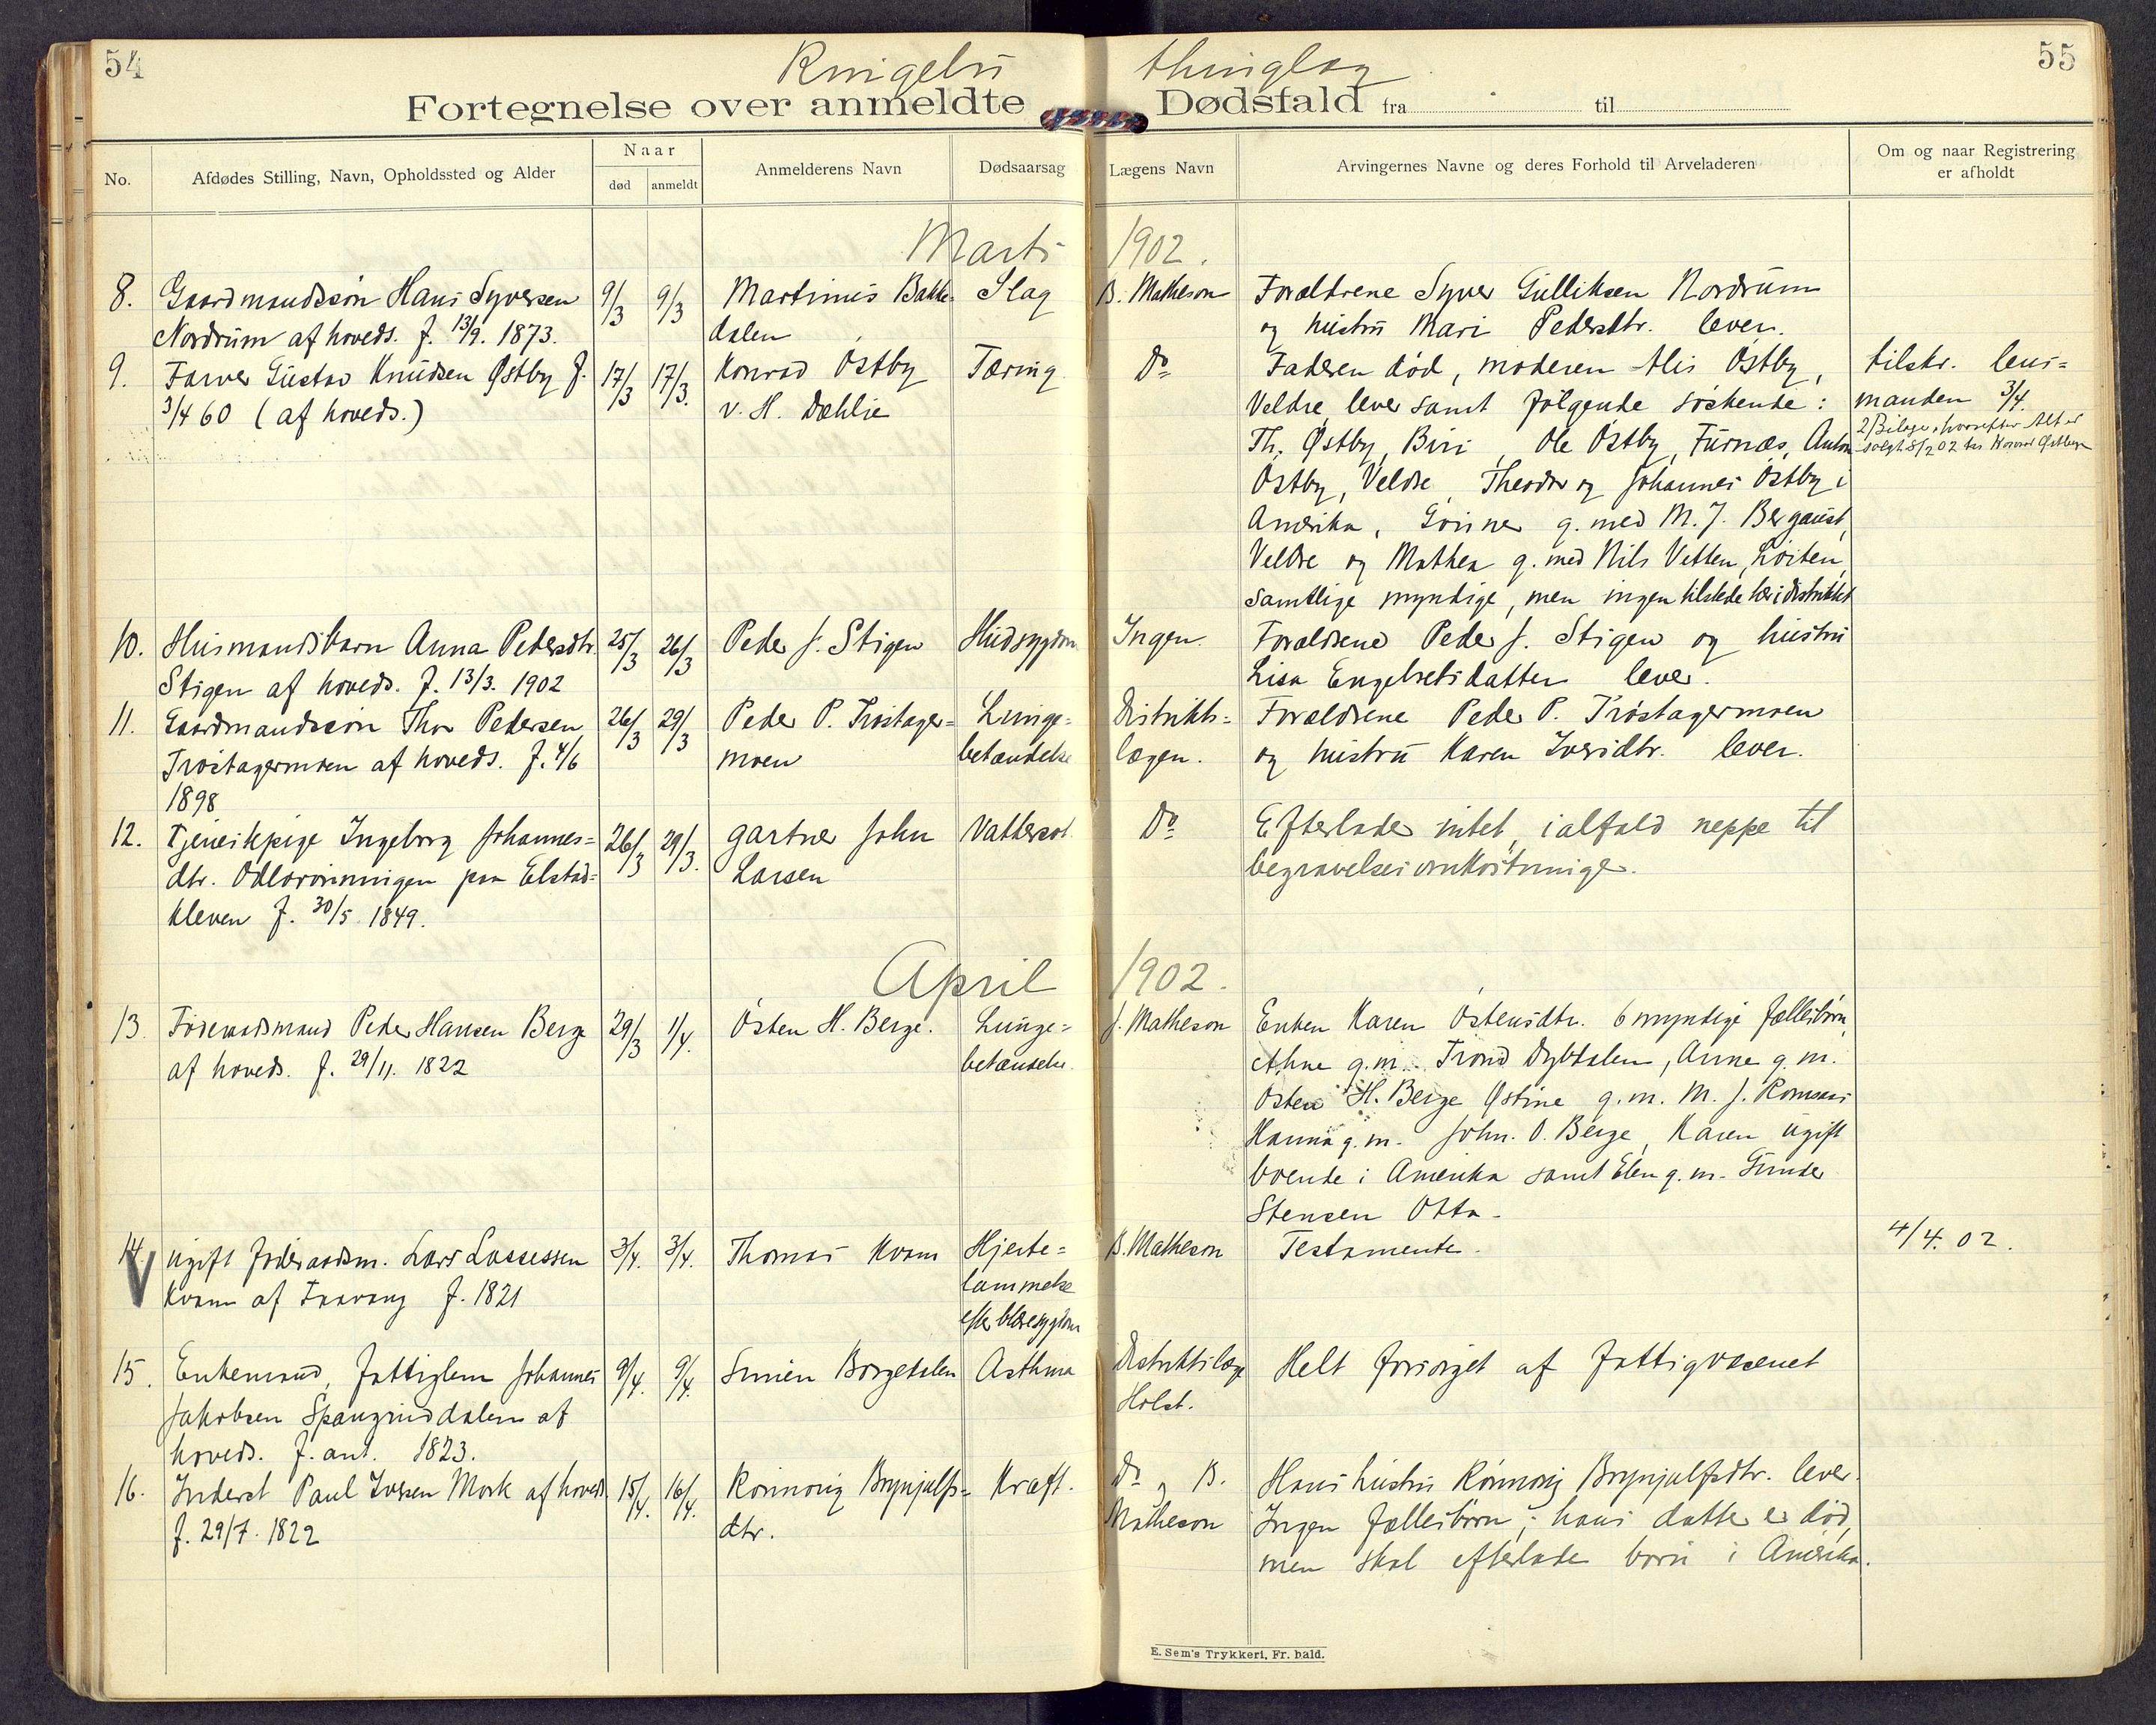 54
55
Ringebu thinglag
Fortegnelse over anmeldte Dødsfald fra til
No.
Afdødes Stilling, Navn, Opholdssted og Alder
Naar
død
anmeldt
Anmelderens Navn
Dødsaarsag
Lægens Navn
Arvingernes Navne og deres Forhold til Arveladeren
Om og naar Registrering
er afholdt
Marts 1902.
8. Gaardmandssøn Hans Syversen
Nordrum af hoveds. f. 13/9. 1873.
9/3
9/3
Martinus Bakke-
dalen
Slag
B. Matheson
Forældrene Syver Gulliksen Nordrum
og hustru Mari Pedersdtr. lever.
9. Farver Gustav Knudsen Østby f.
3/4 60 (af hoveds.)
17/3
17/3.
Konrad Østby
v. H. Dæhlie
Tæring
Do
Faderen død, moderen Alis Østby,
Veldre lever samt følgende søskende:
Th. Østby, Biri, Ole Østby, Furnæs, Anton
Østby, Veldre, Theodor og Johannes Østby i
Amerika, Gunner g. med M. J. Bergaust,
Veldre og Mathea g. med Nils Vetten, Løiten,
samtlige myndige, men ingen tilstede her i distriktet
tilskr. lens=
manden 3/4.
2 Bilage, hvorefter Alt er
solgt 8/2 02 til Konrad Østbye
10. Husmandsbarn Anna Pedersdtr.
Stigen af hoveds. f. 13/3. 1902
25/3
26/3
Peder J. Stigen
Hudsygdom
Ingen.
Forældrene Peder J. Stigen og hustru
Lisa Engebretsdatter lever.
11. Gaardmandssøn Thor Pedersen
Trøstagermoen af hoveds. f. 4/6
1898
26/3
29/3
Peder P. Trøstager=
moen
Lunge=
betændelse
Distrikts=
lægen.
Forældrene Peder P. Trøstagermoen
og hustru Karen Iversdtr. lever.
12. Tjenestepige Ingeborg Johannes=
dtr. Odlorønningen paa Elstad=
kleven f. 30/5. 1849.
26/3
29/3.
gartner John
Larsen
Vattersot
Do
Efterlader intet, ialfald neppe til
begravelsesomkostninger.
April 1902.
13. Føderaadsmand Peder Hansen Berge
af hoveds. f. 29/11. 1822
29/3
1/4.
Østen H. Berge.
Lunge=
betændelse.
J. Matheson
Enken Karen Østensdtr. 6 myndige fællesbørn,
Athne g.m. Trond Dybdalen, Anne g.m.
Østen H. Berge Østine g.m. M. J. Romsaas
Hanna g.m. John. O. Berge, Karen ugift
boende i Amerika samt Elen g.m. Gunder
Stensen Otta.
14. V ugift føderaadsm. Lars Lassessen
Kvam af Faavang f. 1821
3/4.
3/4.
Thomas Kvam
Hjerte=
lammelse
efter blæresygdom
B. Matheson
Testamente.
4/4. 02.
15. Enkemand, fattiglem Johannes
Jakobsen Spangruddalen af
hoveds. f. ant. 1823.
9/4.
9/4.
Simen Borgedalen
Asthma
Distriktslæge
Holst.
Helt forsørget af fattigvæsenet
16. Inderst Paul Iversen Mork af hoveds.
f. 29/7. 1822
15/4.
16/4.
Rønnoug Brynjulfs=
dtr.
Kræft.
Do og B.
Matheson
Hans hustru Rønnoug Brynjulfsdtr. lever.
Ingen fællesbørn; hans datter er død,
men skal efterlade børn i Amerika.
E. Sem's Trykkeri, Fr. hald.